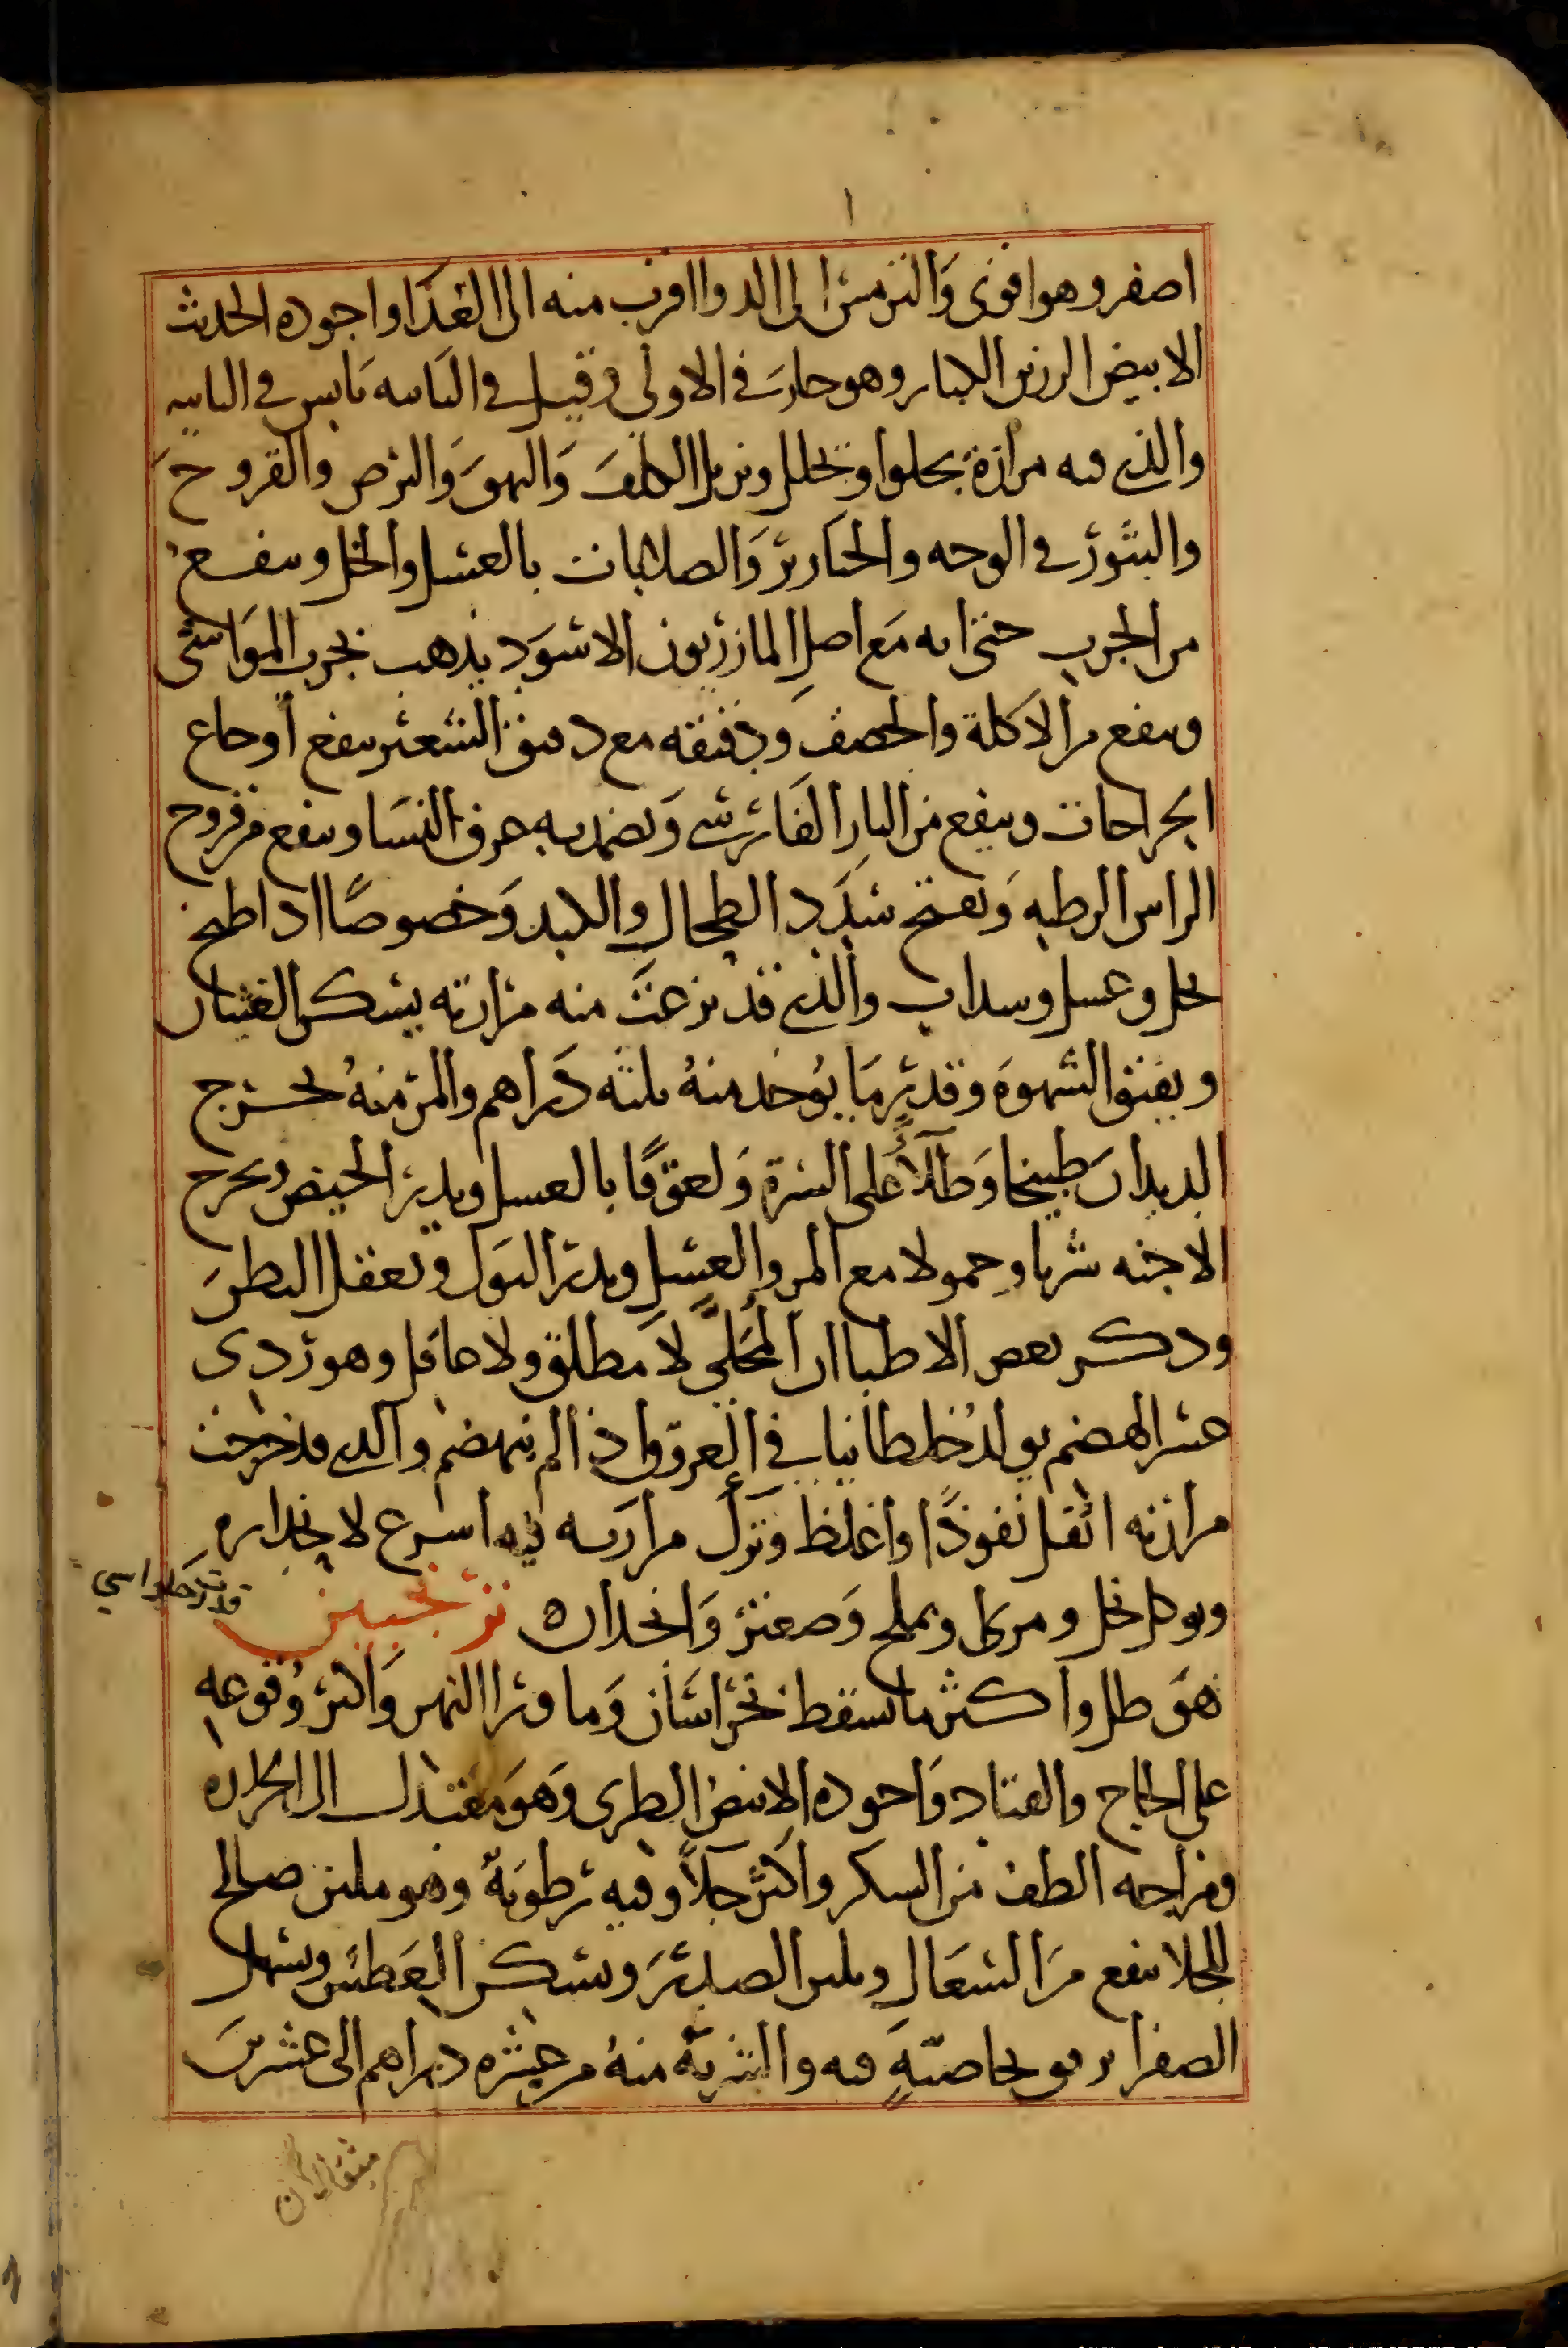 اصفر وهو اقوى والترمس الى الدوا اقرب منه الى الغذا واجوده الحديث
الابيض الرزين الكبار وهو حار في الاولى وقيل في الثانيه يابس في الثانيه
والذي فيه مرارة يجلوا ويحلل ويزيل الكلف والبهق والبرص والقروح
والبثور في الوجه والخنازير والصلابات بالعسل والخل وينفع
من الجرب حتى انه مع اصل المازريون الاسود يذهب بجرب المواشى
وينفع من الاكلة والحصف ودقيقه مع دقيق الشعير ينفع أوجاع
الجراحات وينفع من النار الفارسي ويضمد به عرق النسا وينفع من قروح
الراس الرطبه ويفتح سدد الطحال والكبد وخصوصًا اذا طبخ
بخل وعسل وسداب والذي قد نزعت منه مرارته يسكن الغثيان
ويفتق الشهوه وقدر ما يوخد منهُ ثلثه دراهم والمر منهُ يخرج
الديدان طبيخا وطلآءً على السرة ولعوقًا بالعسل ويدر الحيض ويخرج
الاجنه شربا وحمولا مع المر والعسل ويدر البول ويعقل البطن
ودكر بعض الاطبا ان المحلَّى لا مطلق ولا عاقل وهو ردى
عسر الهضم يولد خلطا نيا في العروق اذا لم ينهضم والذي قد خرجت
مرارته اثقل نفوذًا واغلظ وترك مرارته فيه اسرع لانحداره
ويوكل بخل ومرى وبملح وصعتر وانجدان ترنجبين
هو طل واكثر ما يسقط بخراسان وما ورا النهر واكثر وُقوعه
على الحاج والقتاد واجوده الابيض الطرى وهو معتدل الى الحراره
ومزاجه الطف من السكر واكثر جلآءً وفيه رطوبة وهو ملين صالح
للجلا ينفع من السعال ويلين الصدر ويسكن العطش ويسهل
الصفرا برفق بخاصّيّةٍ فيه والشربة منهُ من عشره دراهم الى عشرين
مثقالان